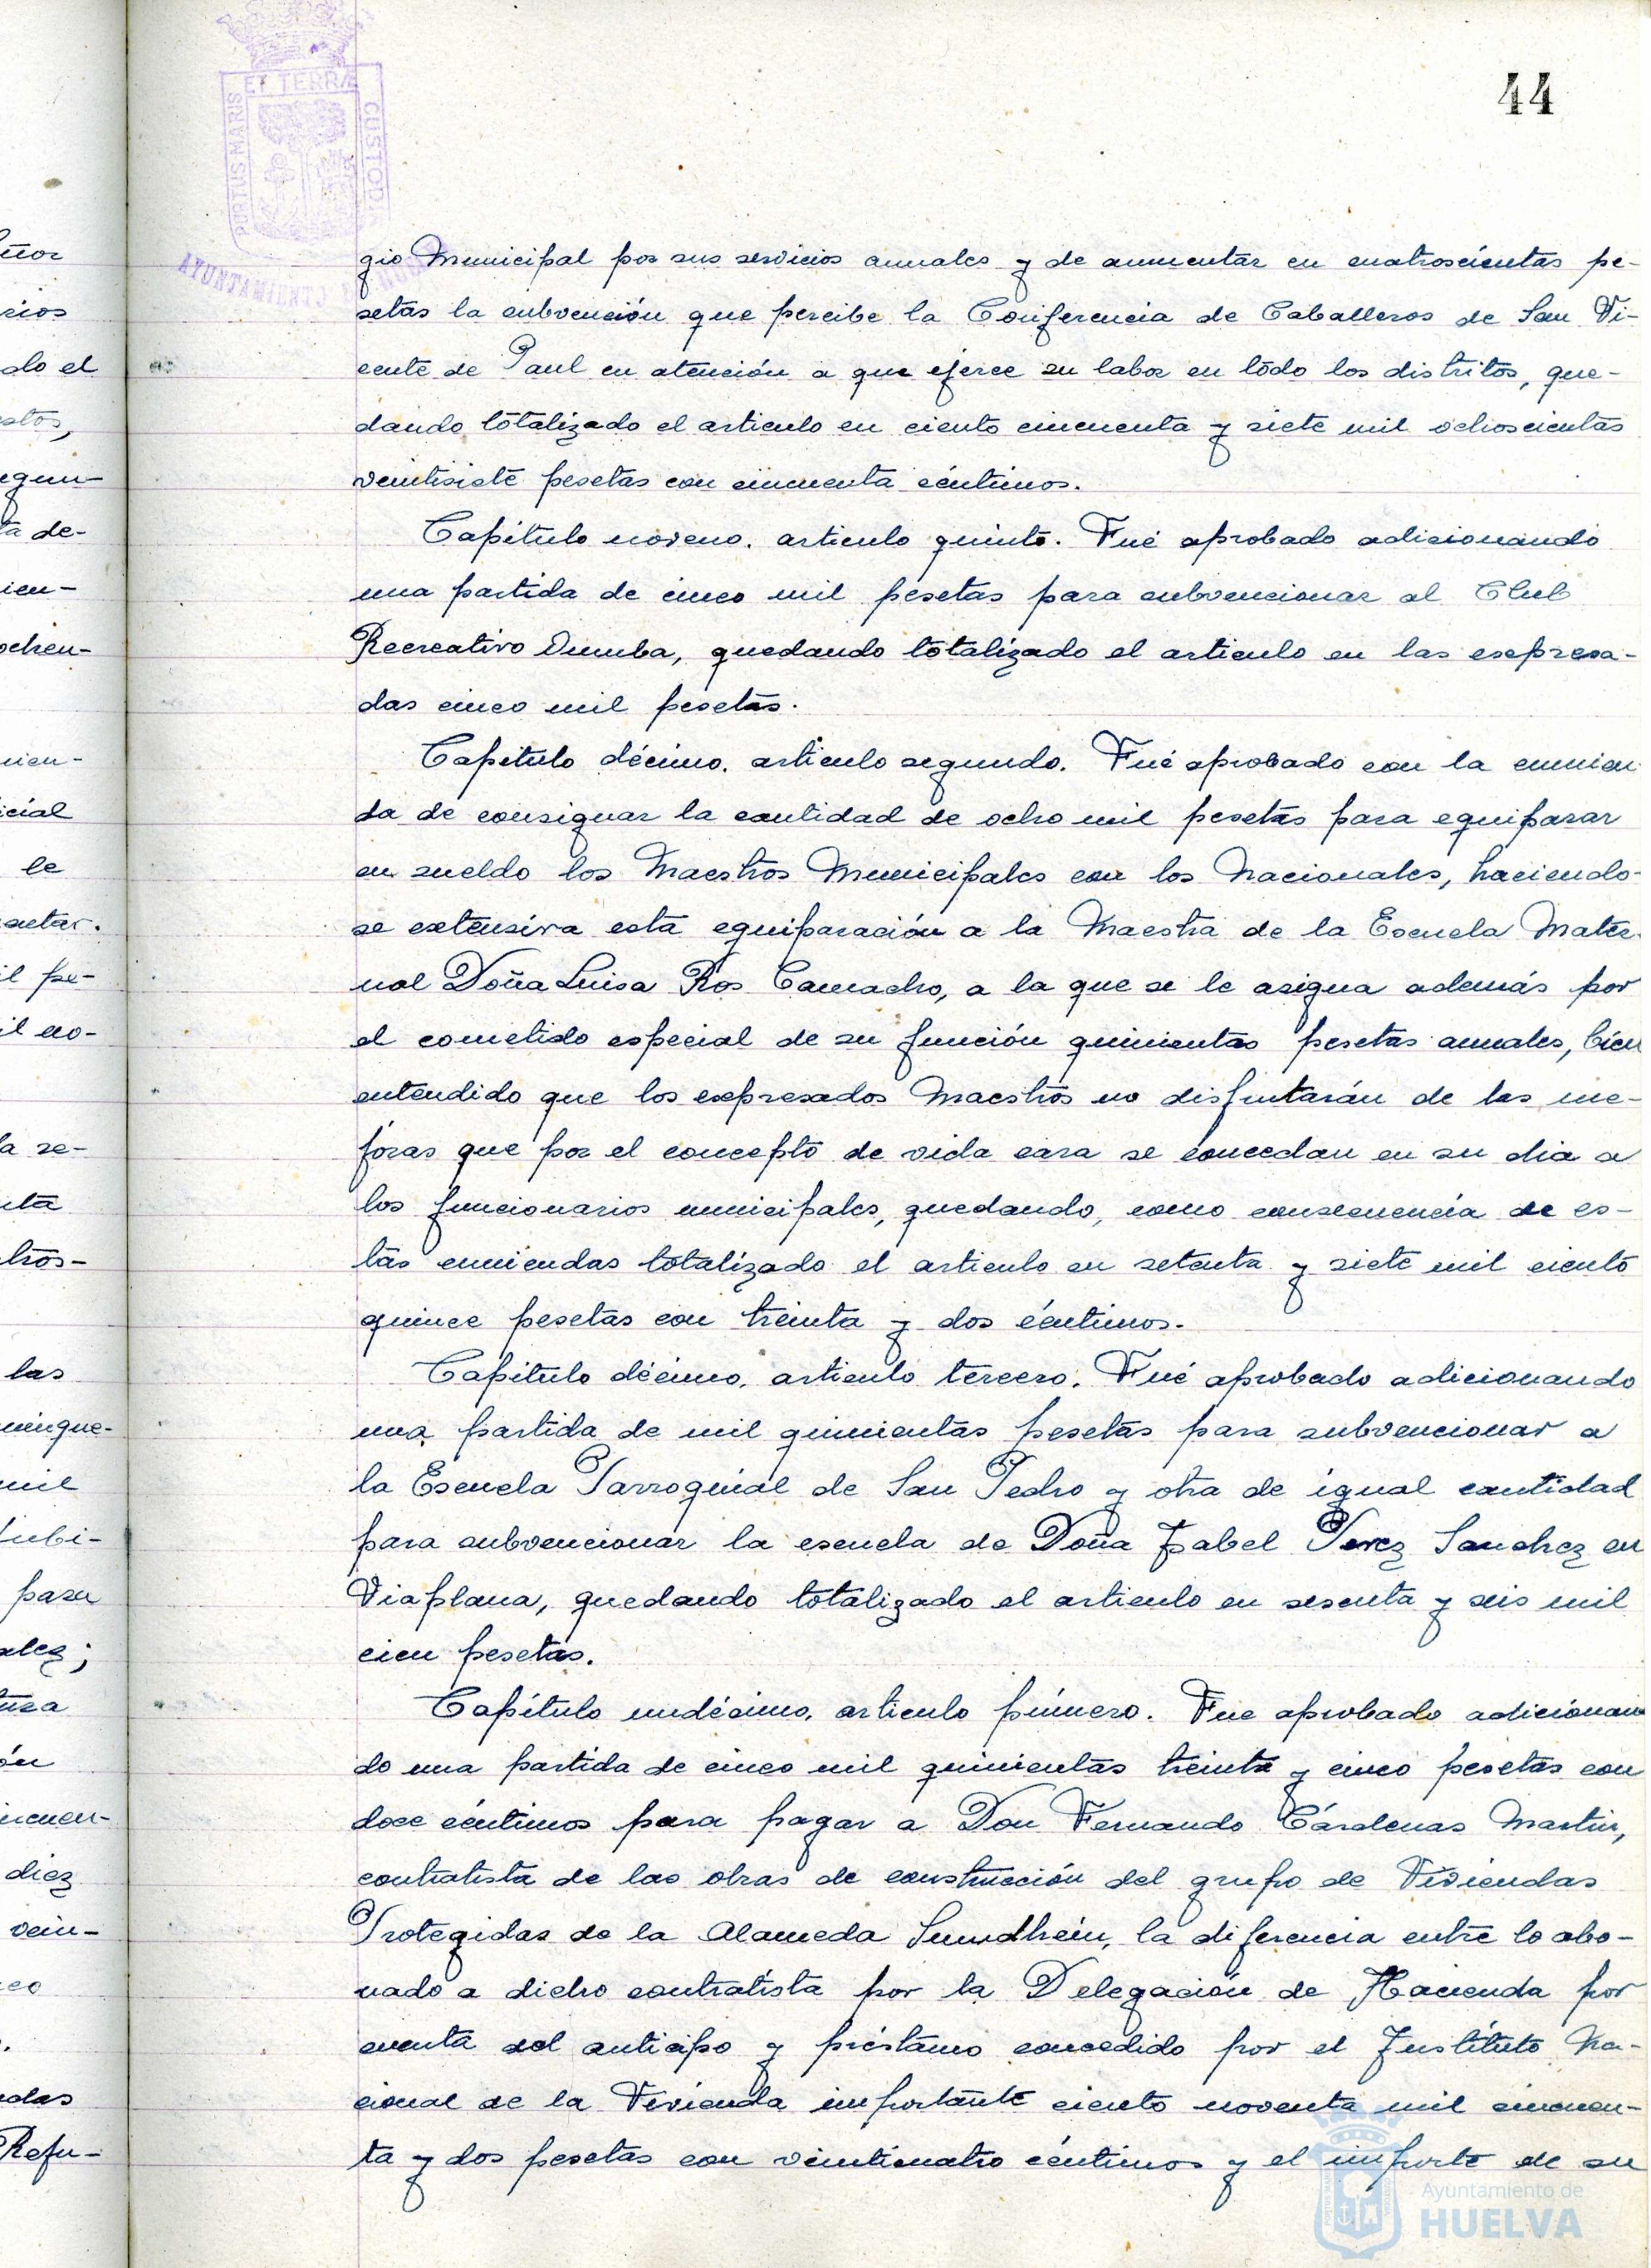 44
PORTUS MARIS ET TERRÆ CUSTODIA
AYUNTAMIENTO
gio Municipal por sus servicios anuales y de aumentar en cuatroscientas pe-
setas la subvención que percibe la Conferencia de Caballeros de San Vi-
cente de Paul en atención a que ejerce su labor en todo los distritos, que-
dando totalizado el articulo en ciento cincuenta y siete mil ochoscientas
veintisiete pesetas con cincuenta céntimos.
Capítulo noveno, articulo quinto. Fué aprobado adicionando
una partida de cinco mil pesetas para subvencionar al Club
Recreativo Onuba, quedando totalizado el articulo en las expresa-
das cinco mil pesetas.
Capitulo décimo, articulo segundo. Fué aprobado con la enmien-
da de consignar la cantidad de ocho mil pesetas para equiparar
en sueldo los Maestros Municipales con los Nacionales, haciendo-
se extensiva esta equiparación a la Maestra de la Escuela Mater-
nal Doña Luisa Ros Camacho, a la que se le asigna además por
el cometido especial de su función quinientas pesetas anuales, bien
entendido que los expresados Maestros no disfrutarán de las me-
joras que por el concepto de vida cara se concedan en su dia a
los funcionarios municipales, quedando, como consecuencia de es-
tas enmiendas totalizado el articulo en setenta y siete mil ciento
quince pesetas con treinta y dos céntimos.
Capitulo décimo, articulo tercero. Fué aprobado adicionando
una partida de mil quinientas pesetas para subvencionar a
la Escuela Parroquial de San Pedro y otra de igual cantidad
para subvencionar la escuela de Doña Isabel Perez Sanchez en
Viaplana, quedando totalizado el articulo en sesenta y seis mil
cien pesetas.
Capítulo undécimo, articulo primero. Fue aprobado adicionan
do una partida de cinco mil quinientas treinta y cinco pesetas con
doce céntimos para pagar a Don Fernando Cárdenas Martin,
contratista de las obras de construcción del grupo de Viviendas
Protegidas de la Alameda Sundhein, la diferencia entre lo abo-
nado a dicho contratista por la Delegación de Hacienda por
cuenta del anticipo y préstamo concedido por el Instituto Na-
cional de la Vivienda importante ciento noventa mil cincuen-
ta y dos pesetas con veinticuatro céntimos y el importe de su
Ayuntamiento de
HUELVA